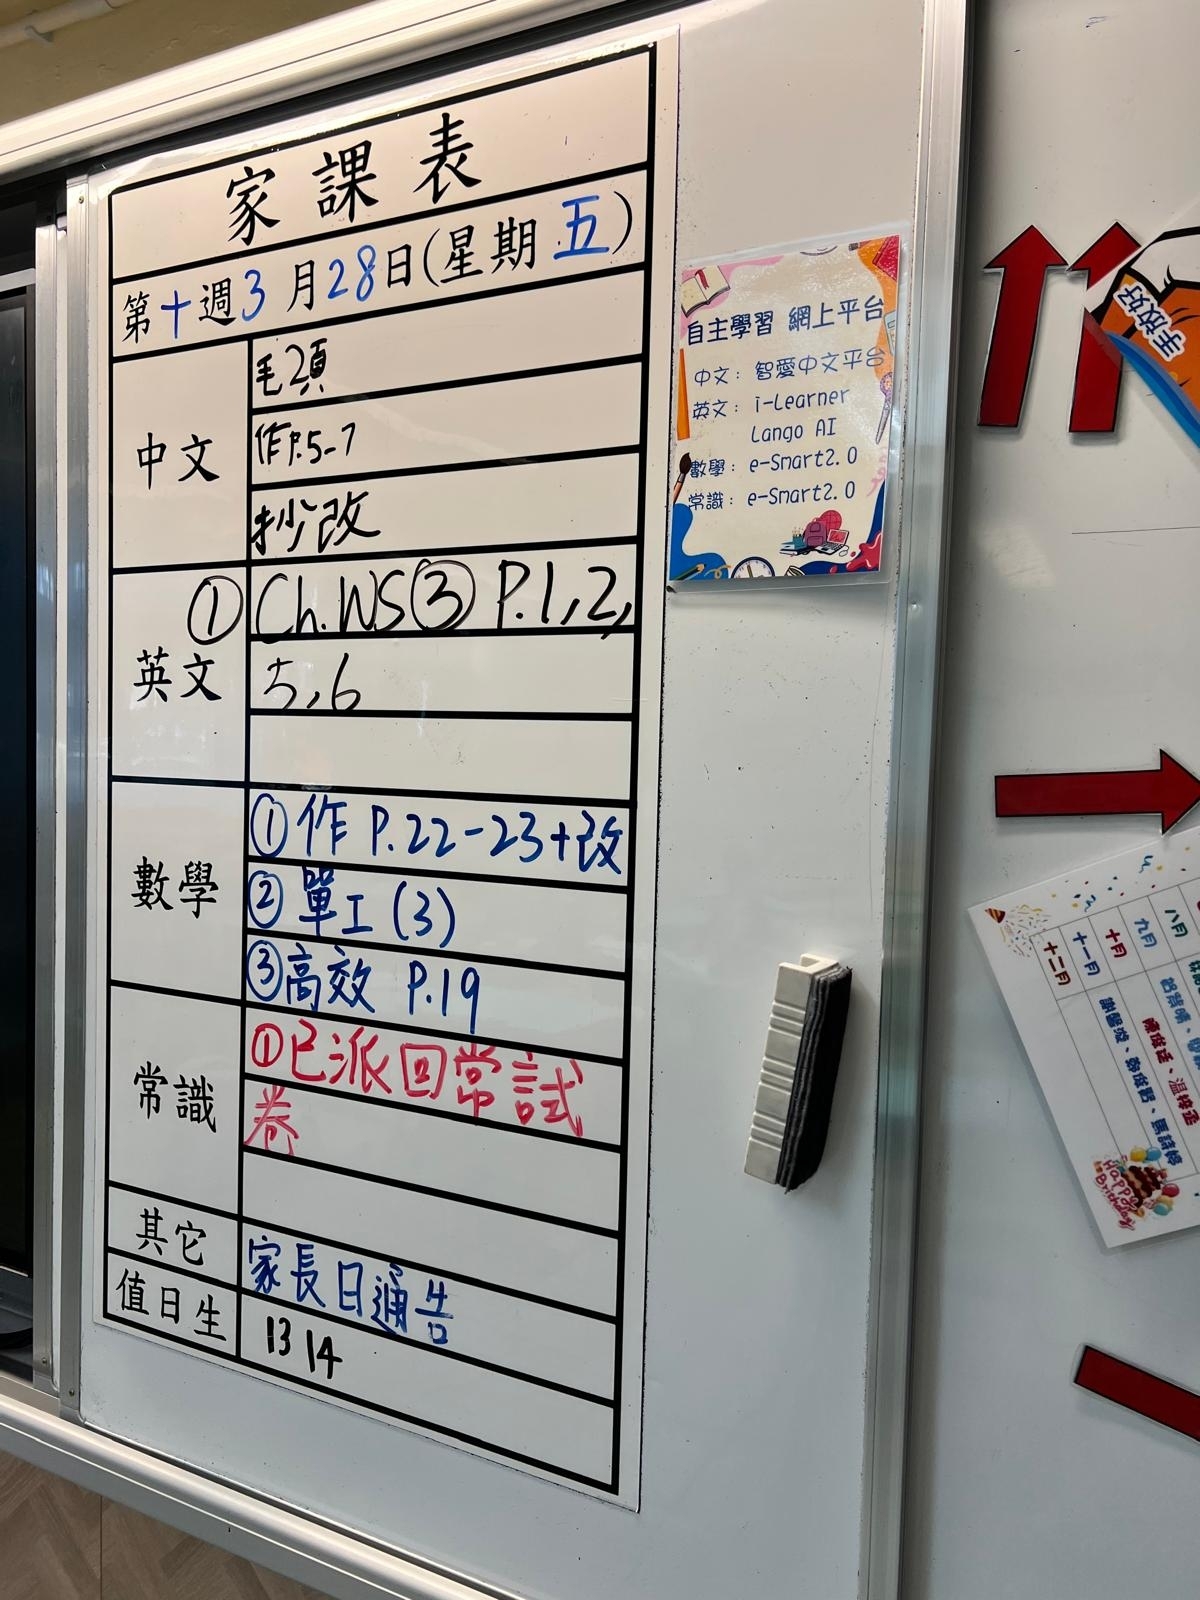 家課表
第十週3月28日(星期五)
中文
毛2頁
作P.5-7
抄改
英文
① Ch.WS③ P.1,2,
5,6
數學
①作 P.22-23+改
②單工(3)
③高效 P.19
常識
①已派回常試
卷
其它
家長日通告
值日生
13 14
自主學習 網上平台
中文：智愛中文平台
英文：i-Learner
Lango AI
數學：e-Smart2.0
常識：e-Smart2.0
手放好
八月
九月
十月
十一月
十二月
Happy
Birthday